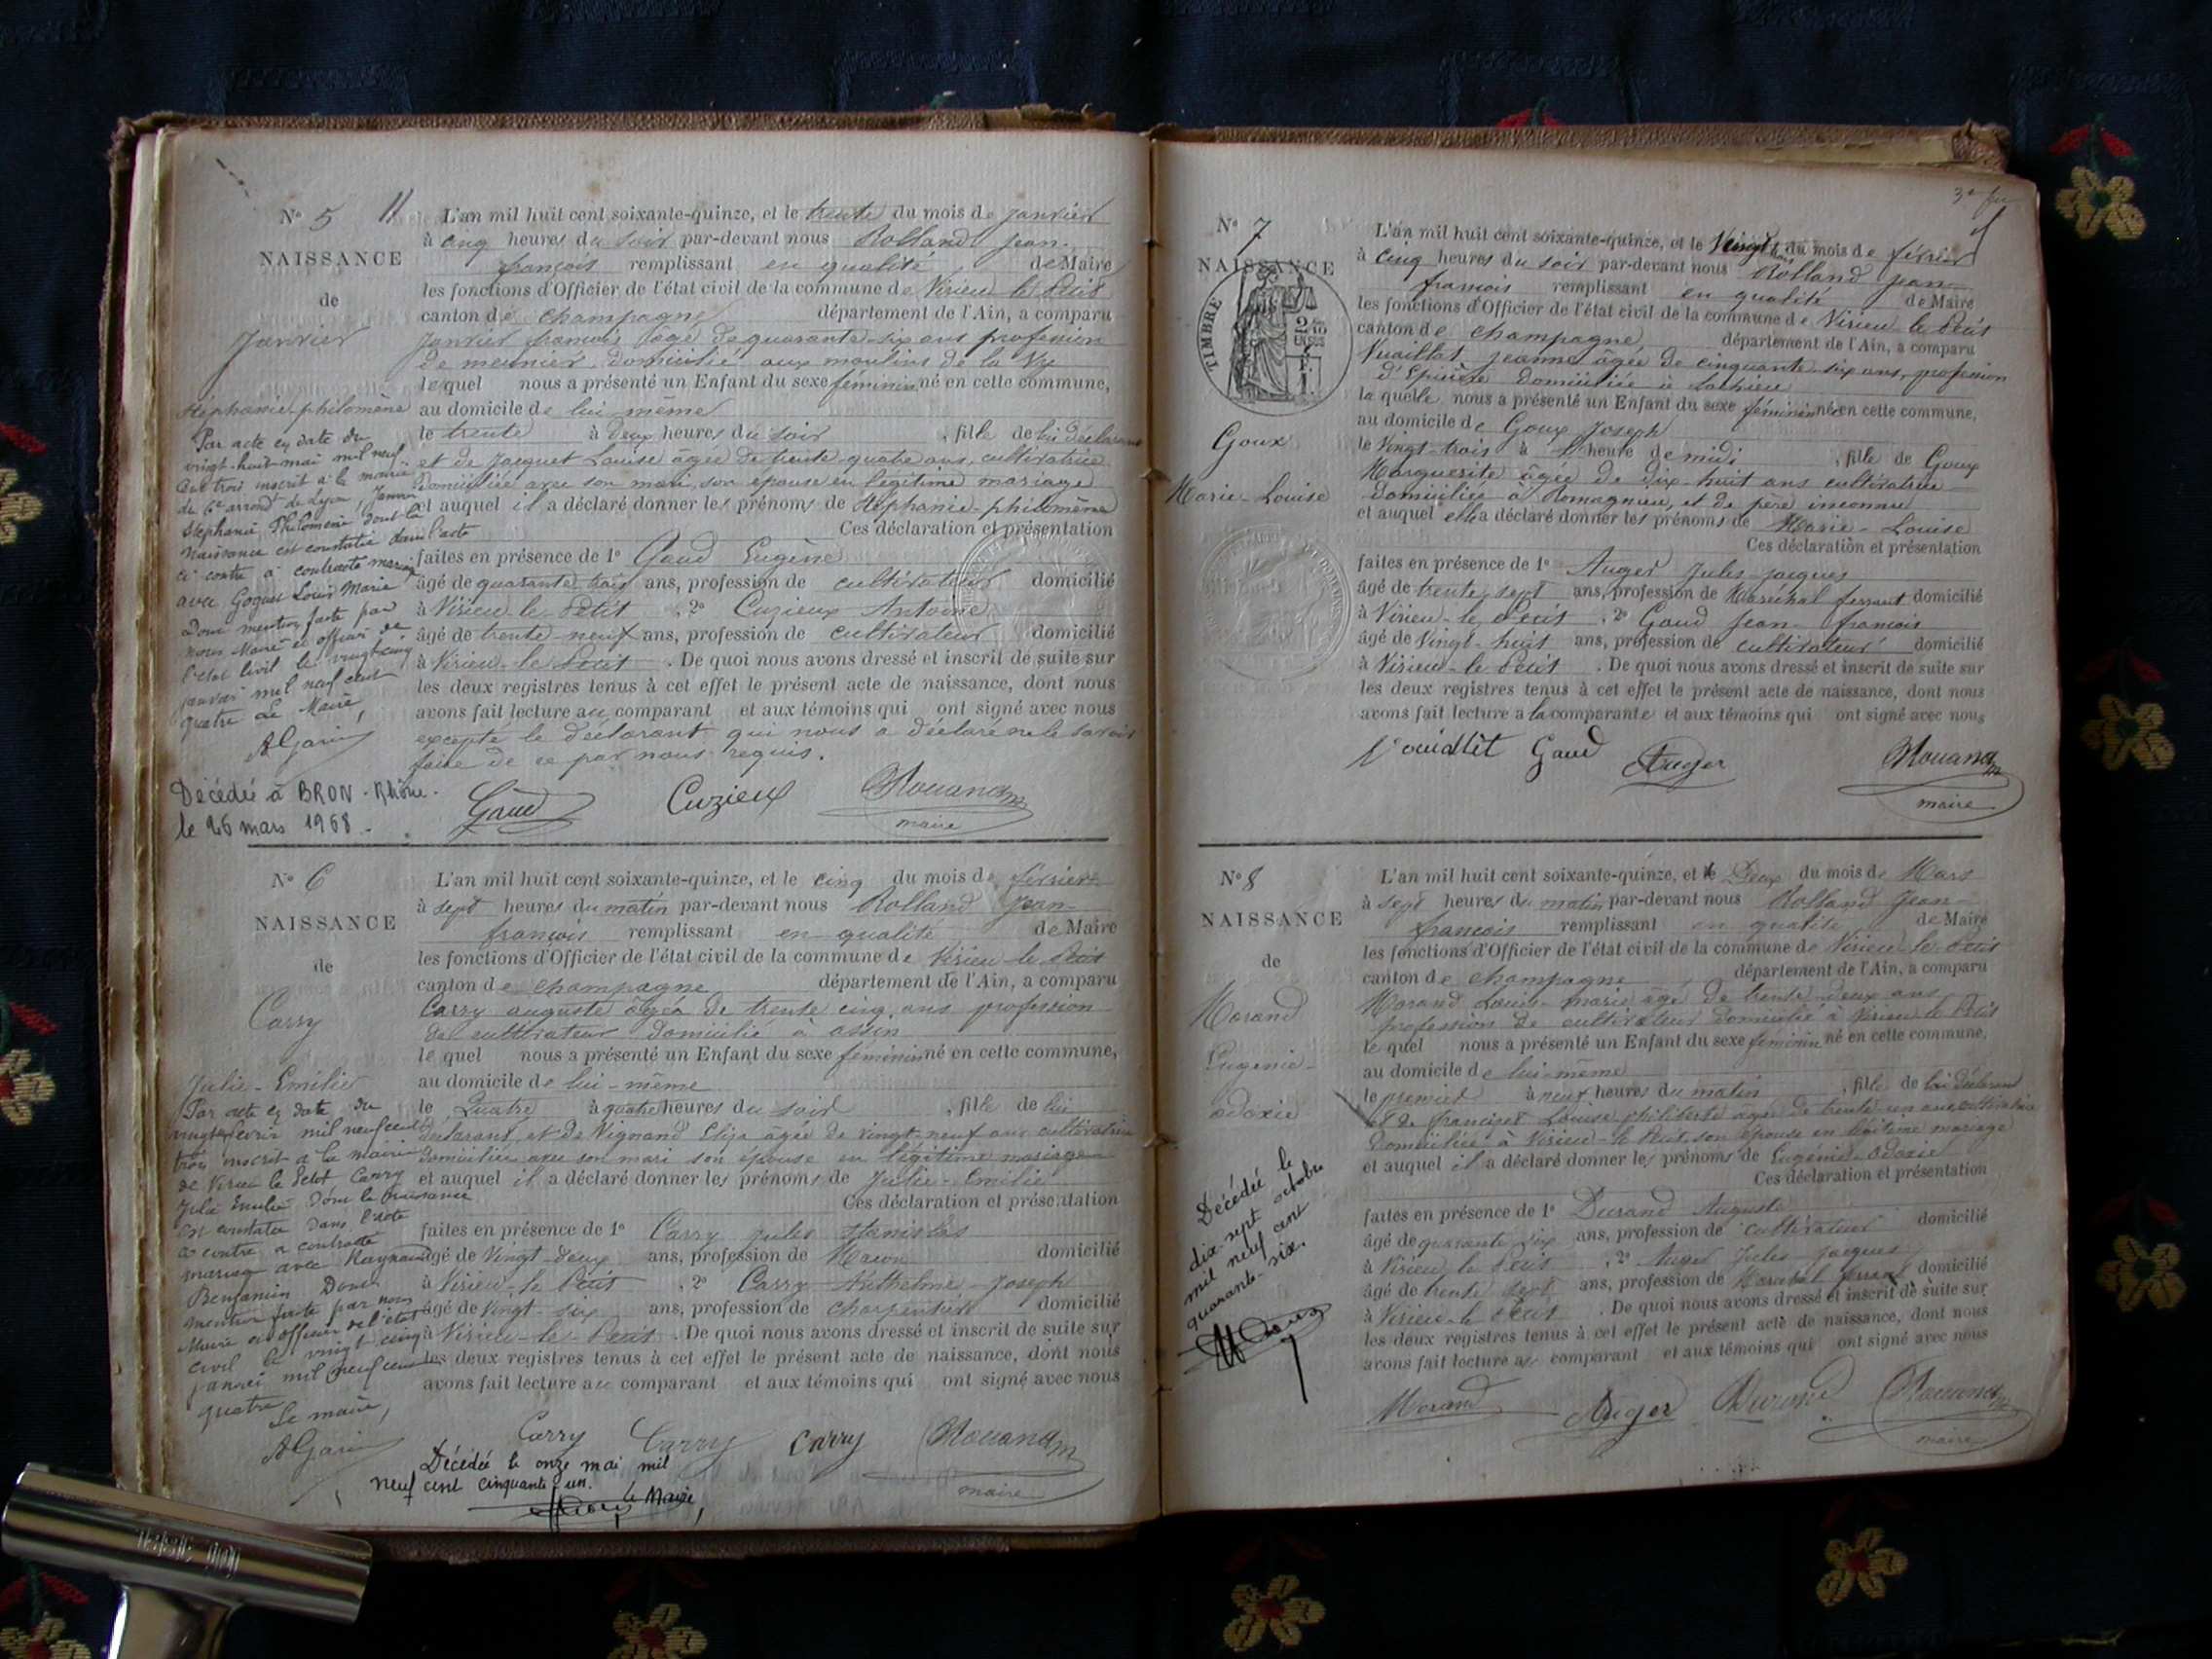 N° 5 11
NAISSANCE
de
Janvier
Stéphanie-philomène
Par acte en date du
vingt-huit mai mil neuf
cent trois inscrit à la mairie
du 6e arrond. de Lyon, Janvier
Stéphanie Philomène dont la
naissance est constatée dans l'acte
ci contre a contracté mariage
avec Goguet Louis Marie
Dont mention faite par
nous Maire et officier de
l'état civil le vingt-cinq
janvier mil neuf cent
quatre Le Maire,
Décédée à BRON - Rhône -
le 26 mars 1968 -
L'an mil huit cent soixante-quinze, et le trente du mois de janvier
à cinq heures du soir par-devant nous Rolland Jean-
françois remplissant en qualité de Maire
les fonctions d'Officier de l'état civil de la commune de Virieu le Petit
canton de champagne département de l'Ain, a comparu
Janvier françois âgé de quarante-six ans profession
de meunier, domicilié aux moulins de la
le quel nous a présenté un Enfant du sexe féminin né en cette commune,
au domicile de lui-même
le trente à deux heures du soir, fille de lui déclarant
et de Jacquet Louise âgée de trente-quatre ans, cultivatrice
domiciliée avec son mari, son épouse en légitime mariage
et auquel il a déclaré donner les prénoms de Stéphanie-philomène
Ces déclaration et présentation
faites en présence de 1° Gaud Eugène
âgé de quarante trois ans, profession de cultivateur domicilié
à Virieu le Petit, 2° Cuzieux Antoine
âgé de trente-neuf ans, profession de cultivateur domicilié
à Virieu-le Petit. De quoi nous avons dressé et inscrit de suite sur
les deux registres tenus à cet effet le présent acte de naissance, dont nous
avons fait lecture au comparant et aux témoins qui ont signé avec nous
excepté le déclarant qui nous a déclaré ne le savoir
faire de ce par nous requis.
Gaud Cuzieux
maire
N° 6
NAISSANCE
de
Carry
Julie-Emilie
Par acte en date du
mil neuf cent
trois inscrit à la mairie
de Virieu le Petit Carry
Julie Emilie Dont la naissance
est constatée dans l'acte
ci contre a contracté
mariage avec Raynaud
Benjamin Dont
mention faite par nous
Maire et officier de l'état
civil le vingt-cinq
janvier mil neuf cent
quatre
Le maire,
L'an mil huit cent soixante-quinze, et le cinq du mois de février
à sept heures du matin par-devant nous Rolland Jean-
françois remplissant en qualité de Maire
les fonctions d'Officier de l'état civil de la commune de Virieu-le Petit
canton de champagne département de l'Ain, a comparu
Carry auguste âgé de trente cinq ans profession
de cultivateur domicilié à assin
le quel nous a présenté un Enfant du sexe féminin né en cette commune,
au domicile de lui-même
le Quatre à quatre heures du soir, fille de lui
déclarant, et de Vignand Eliza âgée de vingt-neuf ans cultivatrice
domiciliée avec son mari son épouse en légitime mariage
et auquel il a déclaré donner les prénoms de Julie-Emilie
Ces déclaration et présentation
faites en présence de 1° Carry jules stanislas
âgé de Vingt deux ans, profession de Macon domicilié
à Virieu-le Petit, 2° Carry Anthelme-Joseph
âgé de Vingt-six ans, profession de charpentier domicilié
à Virieu-le-Petit. De quoi nous avons dressé et inscrit de suite sur
les deux registres tenus à cet effet le présent acte de naissance, dont nous
avons fait lecture au comparant et aux témoins qui ont signé avec nous
Carry Carry Carry
maire
Décédée le onze mai mil
neuf cent cinquante-un.
le Maire,
N° 7
NAISSANCE
TIMBRE
Goux
Marie-Louise
L'an mil huit cent soixante-quinze, et le Vingt trois du mois de février
à cinq heures du soir par-devant nous Rolland Jean-
francois remplissant en qualité de Maire
les fonctions d'Officier de l'état civil de la commune de Virieu-le Petit
canton de champagne département de l'Ain, a comparu
Jeanne âgée de cinquante-six ans, profession
domiciliée à
la quelle nous a présenté un Enfant du sexe féminin né en cette commune,
au domicile de Goux Joseph
le Vingt-trois à heure de midi, fille de Goux
Marguerite âgée de dix-huit ans cultivatrice
domiciliée à Romagnieu, et de père inconnu
et auquel elle a déclaré donner les prénoms de Marie-Louise
Ces déclaration et présentation
faites en présence de 1° Auger Jules-jacques
âgé de trente sept ans, profession de Maréchal ferrant domicilié
à Virieu-le Petit, 2° Gaud Jean-francois
âgé de Vingt-huit ans, profession de cultivateur domicilié
à Virieu-le Petit. De quoi nous avons dressé et inscrit de suite sur
les deux registres tenus à cet effet le présent acte de naissance, dont nous
avons fait lecture a la comparante et aux témoins qui ont signé avec nous
Gaud Auger
maire
N° 8
NAISSANCE
de
Morand
Eugénie-
odoxie
Décédée le
dix-sept octobre
mil neuf cent
quarante-six.
L'an mil huit cent soixante-quinze, et le Deux du mois de Mars
à sept heures du matin par-devant nous Rolland Jean-
francois remplissant en qualité de Maire
les fonctions d'Officier de l'état civil de la commune de Virieu-le-Petit
canton de champagne département de l'Ain, a comparu
Morand Louis-marie âgé de trente-deux ans
profession de cultivateur domicilié à Virieu le Petit
le quel nous a présenté un Enfant du sexe féminin né en cette commune,
au domicile de lui-même
le premier à neuf heures du matin, fille de lui déclarant
et de Louise philiberte âgée de trente-un ans cultivatrice
domiciliée à Virieu-le Petit son épouse en légitime mariage
et auquel il a déclaré donner les prénoms de Eugénie-odoxie
Ces déclaration et présentation
faites en présence de 1° Durand Auguste
âgé de quarante six ans, profession de cultivateur domicilié
à Virieu le Petit, 2° Auger Jules-jacques
âgé de trente sept ans, profession de Maréchal ferrant domicilié
à Virieu-le Petit. De quoi nous avons dressé et inscrit de suite sur
les deux registres tenus à cet effet le présent acte de naissance, dont nous
avons fait lecture au comparant et aux témoins qui ont signé avec nous
Morand Auger Durand
maire